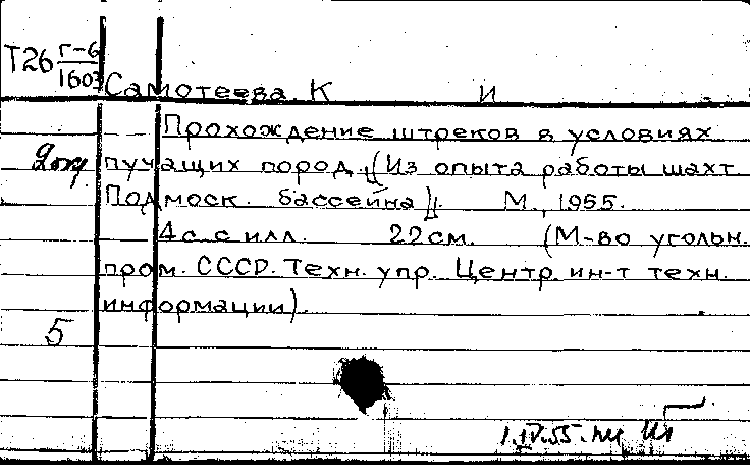 Т26 Г-6
1603
Самотеева К И
Прохождение штреков в условиях
пучащих пород. (Из опыта работы шахт
Подмоск. бассейна). М., 1955.
4 с. с илл. 22 см. (М-во угольн.
пром. СССР. Техн. упр. Центр. ин-т техн.
информации).
5
1.IV.55.